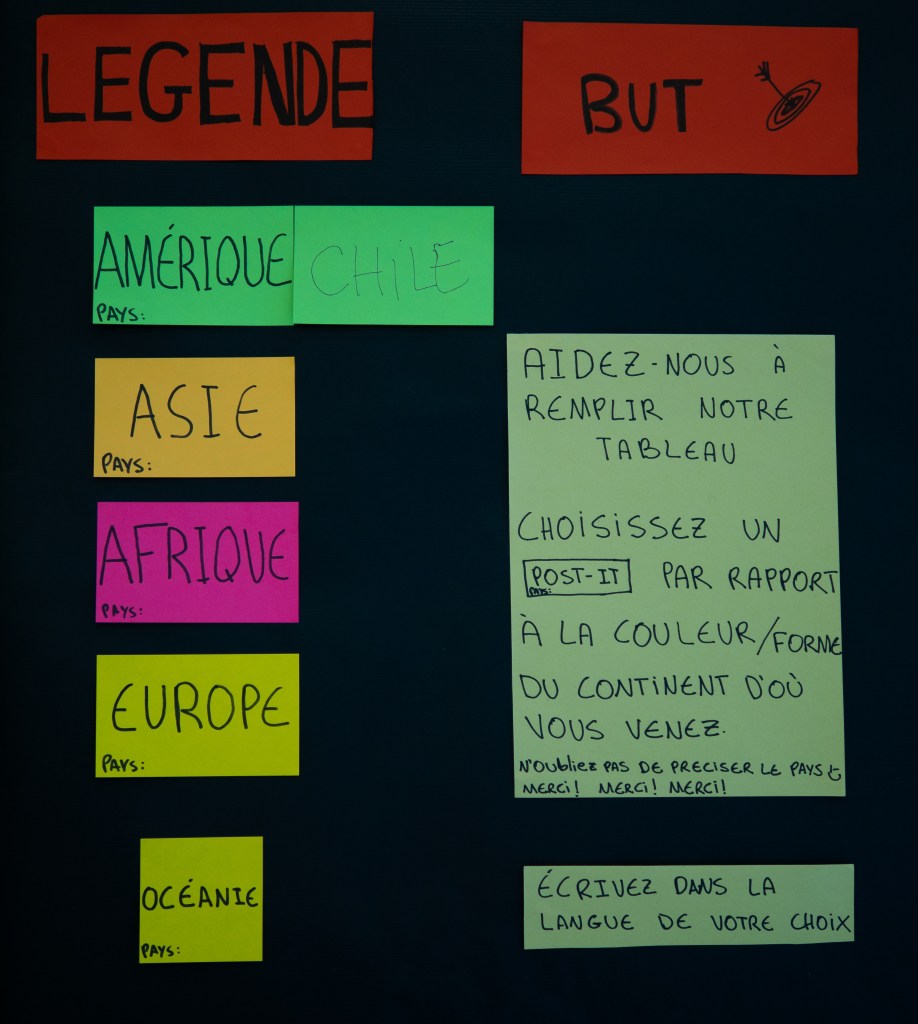 LEGENDE
AMÉRIQUE
PAYS:
CHILE
ASIE
PAYS:
AFRIQUE
PAYS:
EUROPE
PAYS:
OCÉANIE
PAYS:
BUT
AIDEZ-NOUS À
REMPLIR NOTRE
TABLEAU
CHOISISSEZ UN
POST-IT PAR RAPPORT
PAYS:
À LA COULEUR/FORME
DU CONTINENT D'OÙ
VOUS VENEZ.
N'OUBLIEZ PAS DE PRECISER LE PAYS
MERCI! MERCI! MERCI!
ÉCRIVEZ DANS LA
LANGUE DE VOTRE CHOIX